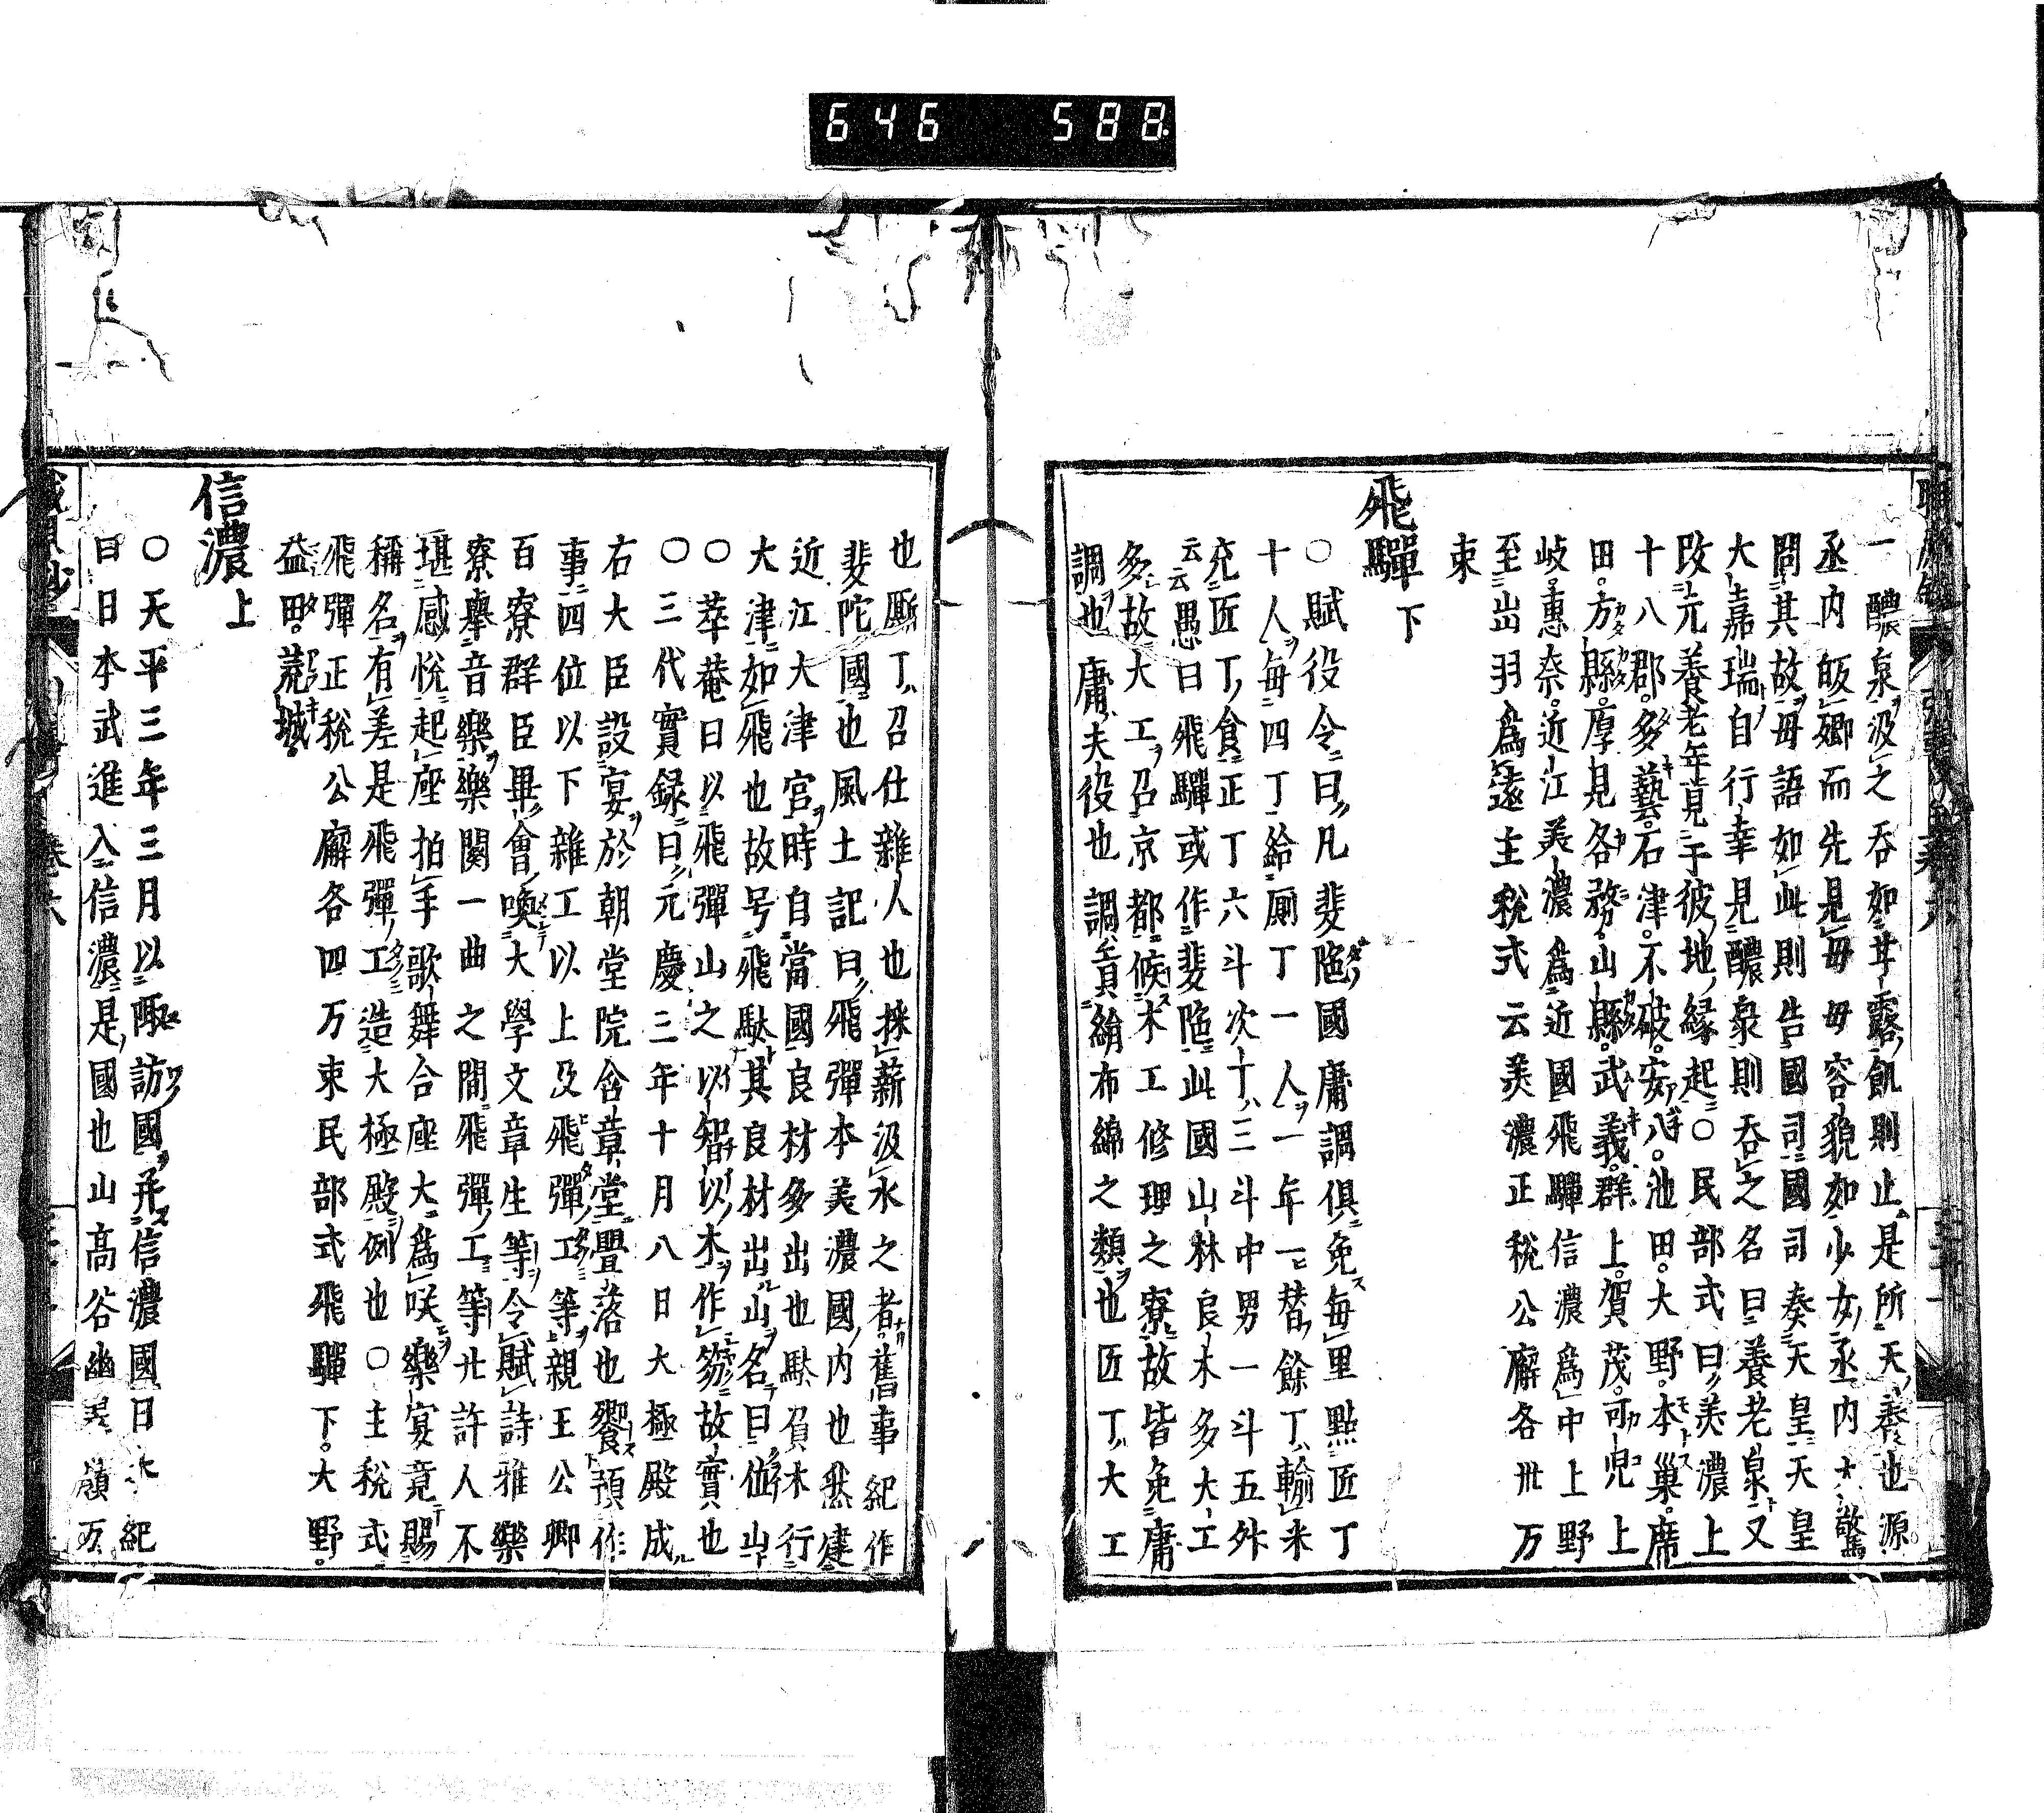 646 588
一醲泉汲之吞如甘露飢則止是所天養也源
丞内皈郷而先見母母容貌如少女丞内大驚
問其故母語如此則告國司國司奏天皇天皇
大嘉瑞自行幸見醲泉則吞之名曰養老泉又
改元養老年見于彼地縁起○民部式曰美濃上
十八郡多藝石津不破安八池田大野本巢席
田方縣厚見各務山縣武義群上賀茂可兒上
岐惠奈近江美濃爲近國飛驒信濃爲中上野
至出羽爲遠主税式云美濃正税公廨各卅万
束
飛驒下
○賦役令曰凡斐陁國庸調俱免毎里點匠丁
十人毎四丁給厠丁一人一年一替餘丁輸米
充匠丁食正丁六斗次丁三斗中男一斗五外
云云愚曰飛驒或作斐陁此國山林良木多大工
多故大工召京都候木工修理之寮故皆免庸
調也庸夫役也調貢絹布綿之類也匠丁大工
也厮丁召仕雜人也採薪汲水之者舊事紀作
斐陀國也風土記曰飛彈本美濃國内也然建
近江大津宮時自當國良材多出也馱負木行
大津如飛也故号飛馱其良材出山名曰位山
○萃菴曰以飛彈山之以智以木作笏故實也
○三代實録曰元慶三年十月八日大極殿成
右大臣設宴於朝堂院含章堂疊落也饗預作
事四位以下雜工以上及飛彈工等親王公卿
百寮群臣畢會喚大學文章生等令賦詩雅樂
寮舉音樂樂闋一曲之間飛彈工等廿許人不
堪感悅起座拍手歌舞合座大爲咲樂宴竟賜
稱名有差是飛彈工造大極殿例也○主税式
飛彈正税公廨各四万束民部式飛驒下大野
益田荒城
信濃上
○天平三年三月以諏訪國并信濃國日本紀
曰日本武進入信濃是國也山高谷幽